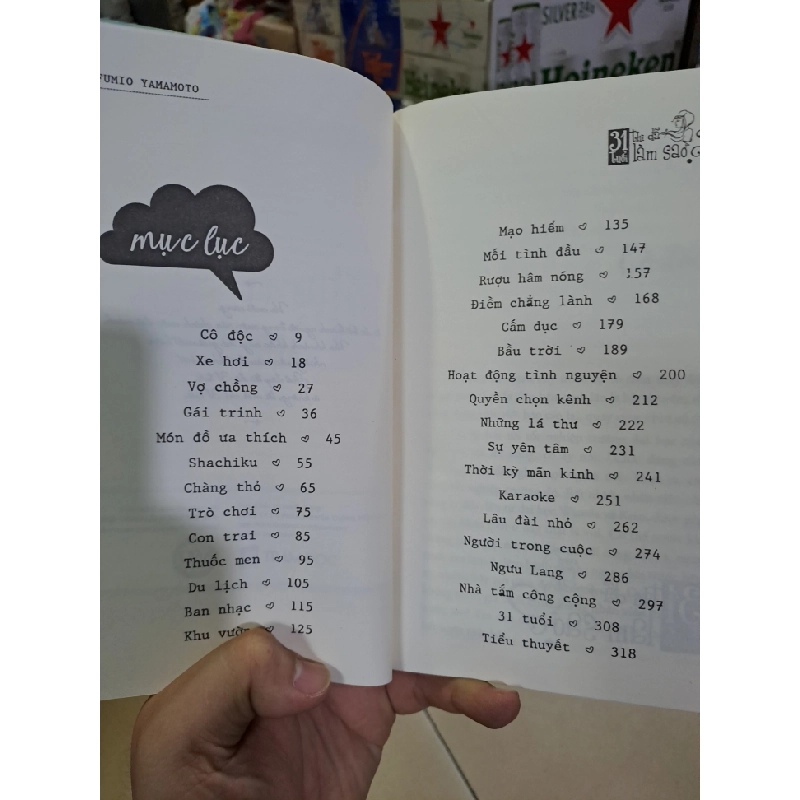 FUMIO YAMAMOTO
mục lục
Cô độc 9
Xe hơi 18
Vợ chồng 27
Gái trinh 36
Món đồ ưa thích 45
Shachiku 55
Chàng thỏ 65
Trò chơi 75
Con trai 85
Thuốc men 95
Du lịch 105
Ban nhạc 115
Khu vườn 125
31 tuổi
làm sao
Mạo hiểm 135
Mối tình đầu 147
Rượu hâm nóng 157
Điềm chẳng lành 168
Cấm dục 179
Bầu trời 189
Hoạt động tình nguyện 200
Quyền chọn kênh 212
Những lá thư 222
Sự yên tâm 231
Thời kỳ mãn kinh 241
Karaoke 251
Lâu đài nhỏ 262
Người trong cuộc 274
Ngưu Lang 286
Nhà tắm công cộng 297
31 tuổi 308
Tiểu thuyết 318
SILVER
Heineken
Heineken